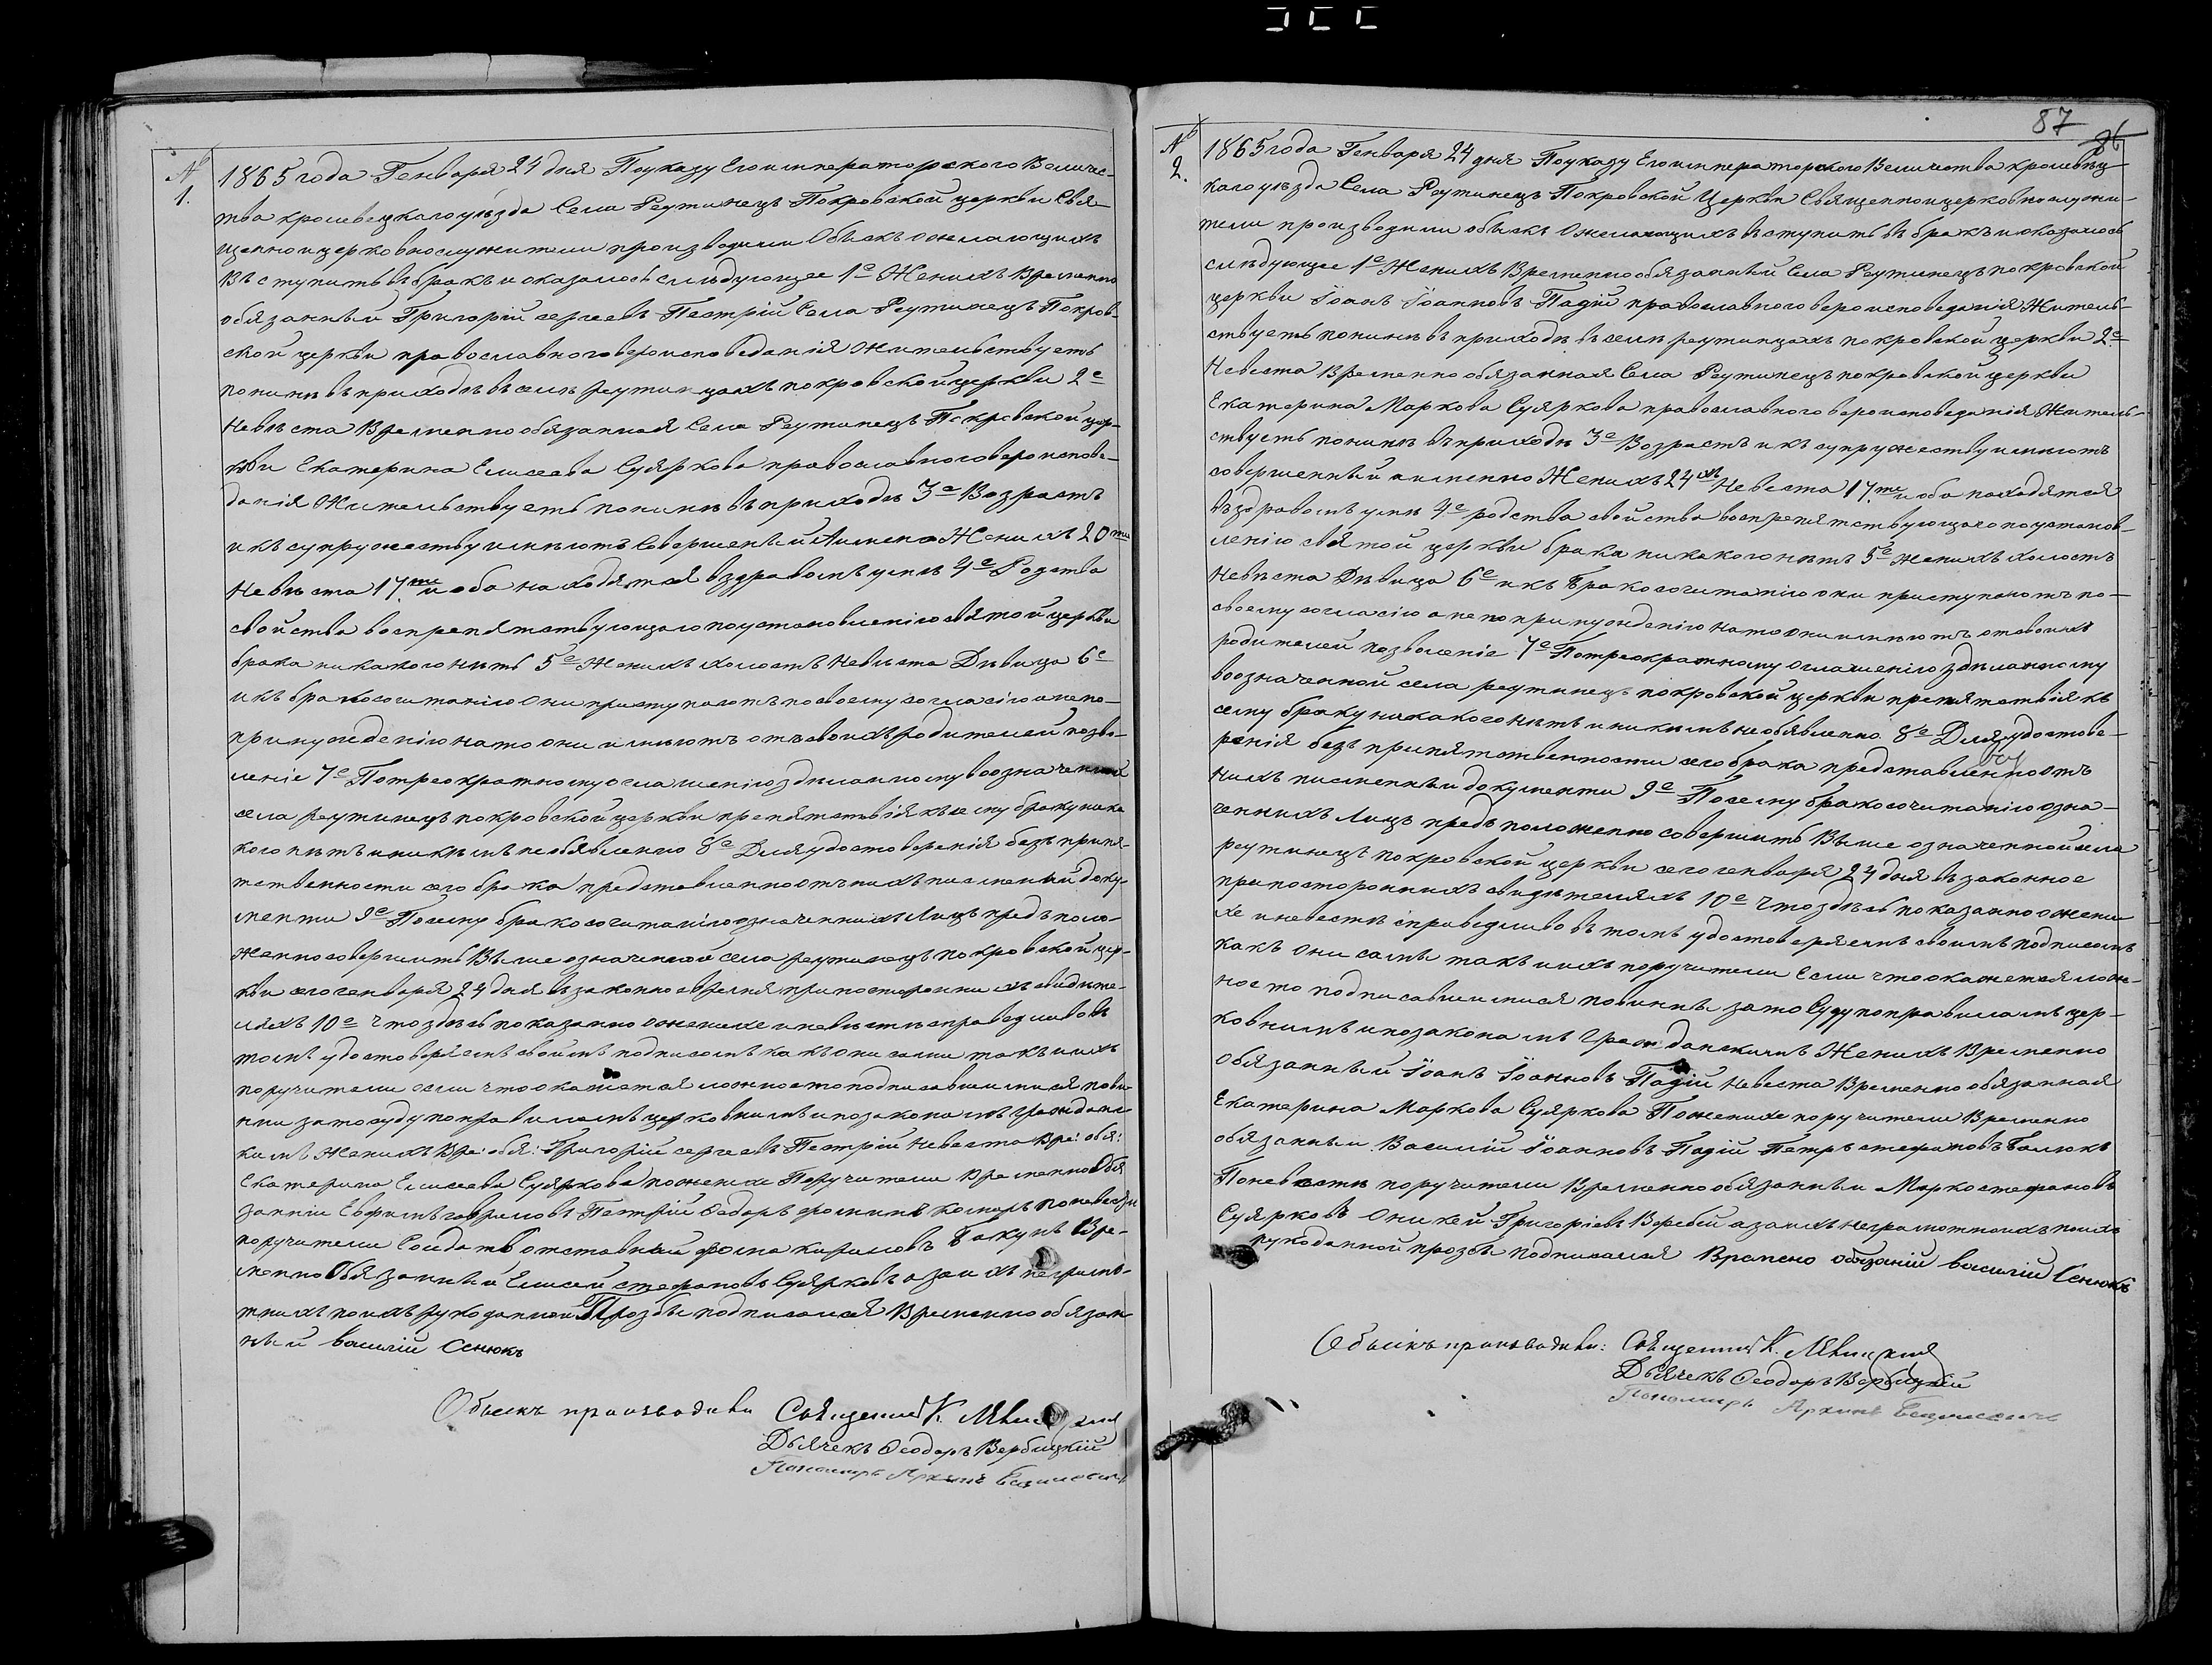 № 1.
1865 года Генваря 24 дня Поуказу Его императорского Величес-
тва кролевецкаго уѣзда Села Реутинецъ Покровской церкви Свя-
щенно и церковнослужители производили Обыскъ о желающихъ
Въступить въ бракъ и оказалось слѣдующее 1е Женихъ Временно
обязанный Григорій сергеевъ Пестрій Села Реутинецъ Покров-
ской церкви православного вероисповеданія жительствуетъ
понинѣ въ приходѣ въ селѣ реутинцахъ покровской церкви 2е
Невѣста Временно обязанная Села Реутинецъ Покровской цер-
кви Екатерина Елисеева Суяркова православного вероиспове-
данія Жительствуетъ понинѣ въ приходѣ 3е Возрастъ
и къ супружеству имѣютъ Совершеный Аименно Женихъ 20ти
Невѣста 17ти и оба находятся вздравомъ умѣ 4е Родства
свойства воспрепятствующаго поустановленію святой церкви
брака никакого нѣтъ 5е Женихъ холостъ Невѣста Дѣвица 6е
и къ бракосочитанію Они приступаютъ по своему согласію а непо-
принужденію на то они имѣютъ отъ своихъ Родителей позво-
леніе 7е Потреократному оглашенію зделанному воозначенной
села реутинецъ покровской церкви препятствія къ сему браку ника
кого нѣтъ и никѣмъ необявленно 8е Для удостоверенія безъ припя-
тственности сего брака представленно отъ нихъ писменый доку-
менти 9е Посему бракосочитанію означеннихъ Лицъ предъполо-
женно совершить Выше означенной села реутинецъ покровской цер-
кви сего генваря 24 дня въ законное время при посторонни хъ свидѣте-
ляхъ 10е Что здѣсь показанно о женихе и невѣсте справедливо въ
томъ удостоверяемъ своимъ подписомъ какъ они сами такъ и ихъ
поручители если что окажется ложно то подписавшимися пови-
нни за то суду по правиламъ церковнимъ и по законамъ гражданс
кимъ Женихъ вре: обя: Григорій сергеевъ Пестрій Невеста вре: обя:
Екатерина Елисеева Суяркова по женихе Поручители Временно Обя
занніи Евфимъ гавриловъ Пестрій Феодоръ фоминъ по невесте
поручители Солдатъ отставный фома кириловъ Бакунъ Вре-
менно Обязанный Елисей стефановъ Суярковъ а за ихъ неграмо-
тнихъ по ихъ рукоданной Прозбе подписался Временно обязан
ный василій Сенюкъ
Обыскъ производили Священникъ К.
Дьячекъ Феодоръ Вербицкій
Пономарь Архипъ
87
86
№ 2.
1865 года Генваря 24 дня Поуказу Его императорского Величества кролевец-
каго уѣзда Села Реутинецъ Покровской Церкви Священно и церковнослужи-
тели производили обыскъ О желающихъ въступить въ бракъ и оказалось
слѣдующее 1е Женихъ Временно обязанный Села Реутинецъ покровской
церкви Іоанъ Іоанновъ Падій православного вероисповеданія Житель-
ствуетъ понинѣ въ приходѣ въ селѣ реутинцахъ покровской церкви 2е
Невеста Временно обязанная Села Реутинецъ покровской церкви
Екатерина Маркова Суяркова православного вероисповеданія Житель-
ствуетъ понинѣ въ приходѣ 3е Возрастъ и къ супружеству имѣютъ
совершенный аименно Женихъ 24хъ Невеста 17ти и оба находятся
въздравомъ умѣ 4е родства свойства воспрепятствующаго поустанов-
ленію святой церкви брака никакого нѣтъ 5е Женихъ холостъ
Невѣста Дѣвица 6е и къ Бракосочитанію они приступаютъ по-
своему согласію а не по принужденію на то они имѣютъ отъ своихъ
родителей позволеніе 7е Потреократному оглашенію зделанному
воозначенной села реутинецъ покровской церкви препятствія къ
сему браку никакого нѣтъ и никѣмъ необявленно 8е Для удостове-
ренія безъ припятственности сего брака представленно отъ
нихъ писменный документи 9е Посему бракосочитанію озна-
ченнихъ Лицъ предъположенно совершить Выше означенной села
реутинецъ покровской церкви сего генваря 24 дня въ законное
при постороннихъ свидѣтеляхъ 10е Что здѣсь показанно о жени
хе и невестѣ справедливо въ томъ удостоверяемъ своимъ подписомъ
какъ Они самы такъ и ихъ поручители Если что окажется лож-
но то подписавшимися повинны за то Суду по правиламъ цер-
ковнимъ и по законамъ Гражданскимъ Женихъ Временно
Обязанный Іоанъ Іоанновъ Падій Невеста Временно обязанная
Екатерина Маркова Суяркова По женихе поручители Временно
обязанныи Василій Іоанновъ Падій Петръ стефановъ Галюкъ
По невестѣ поручители Временно обязанныи Марко стефановъ
Суярковъ Оникей Григоріевъ Воробей а за ихъ неграмотнихъ по ихъ
рукоданной прозбе подписался Времено обязаній василій Сенюкъ
Обыскъ производили: Священникъ К.
Дьячекъ Феодоръ Вербицкій
Пономарь Архипъ